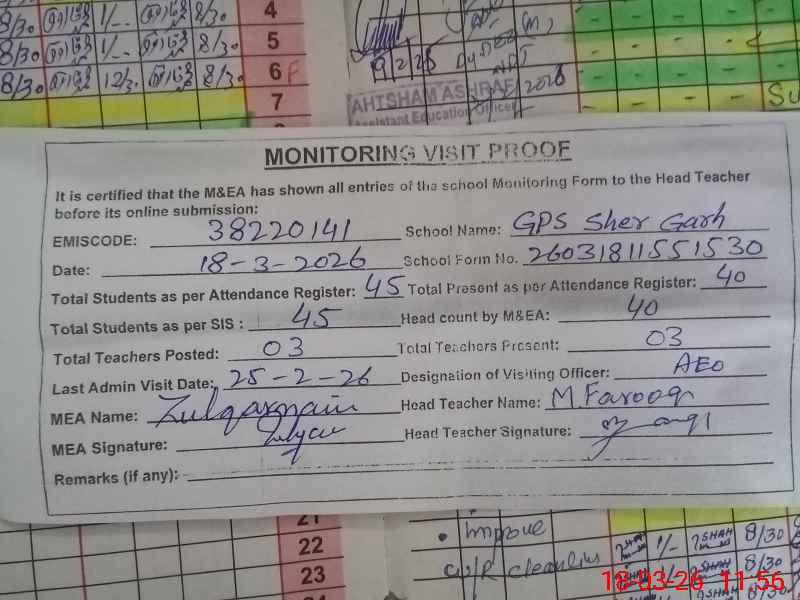 4
5
6 F
7
8/30 1/- 8/30
8/30 12/3. 8/30
19/2/25
AHISHAM ASHRAF
Assistant Education Officer
MONITORING VISIT PROOF
It is certified that the M&EA has shown all entries of the school Monitoring Form to the Head Teacher
before its online submission:
EMISCODE: 38220141 School Name: GPS Sher Garh
Date: 18-3-2026 School Form No. 26031811551530
Total Students as per Attendance Register: 45 Total Present as per Attendance Register: 40
Total Students as per SIS : 45 Head count by M&EA: 40
Total Teachers Posted: 03 Total Teachers Present: 03
Last Admin Visit Date: 25-2-26 Designation of Visiting Officer: AEO
MEA Name: Zulqarnain Head Teacher Name: M.Farooq
MEA Signature: Head Teacher Signature:
Remarks (if any):
21
22
23
• Improve
cleanliness
SHAH 1/- SHAH 8/30
18-03-26 11:56